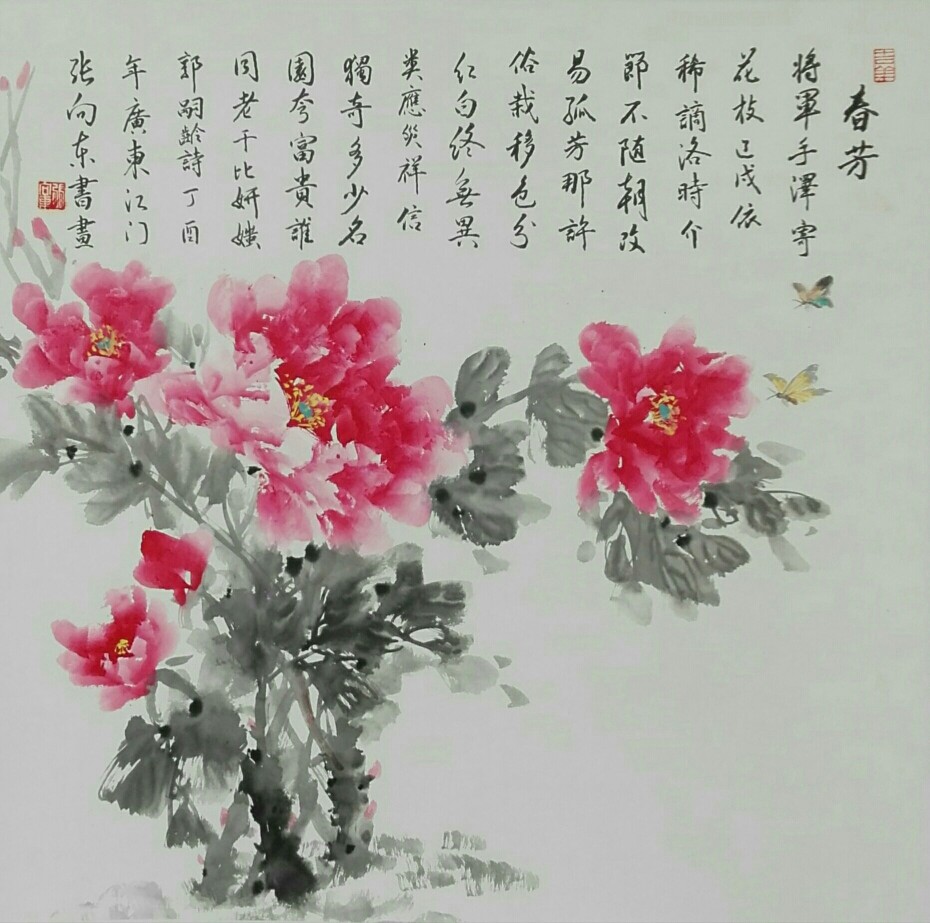 春芳
將軍手澤寄
花枝已成依
稀謫洛時介
節不随朝改
易孤芳那許
俗栽移色分
紅白終無異
类應災祥信
獨奇多少名
園夸富貴誰
同老干比妍媸
郭嗣齡詩丁酉
年廣東江门
张向东書畫